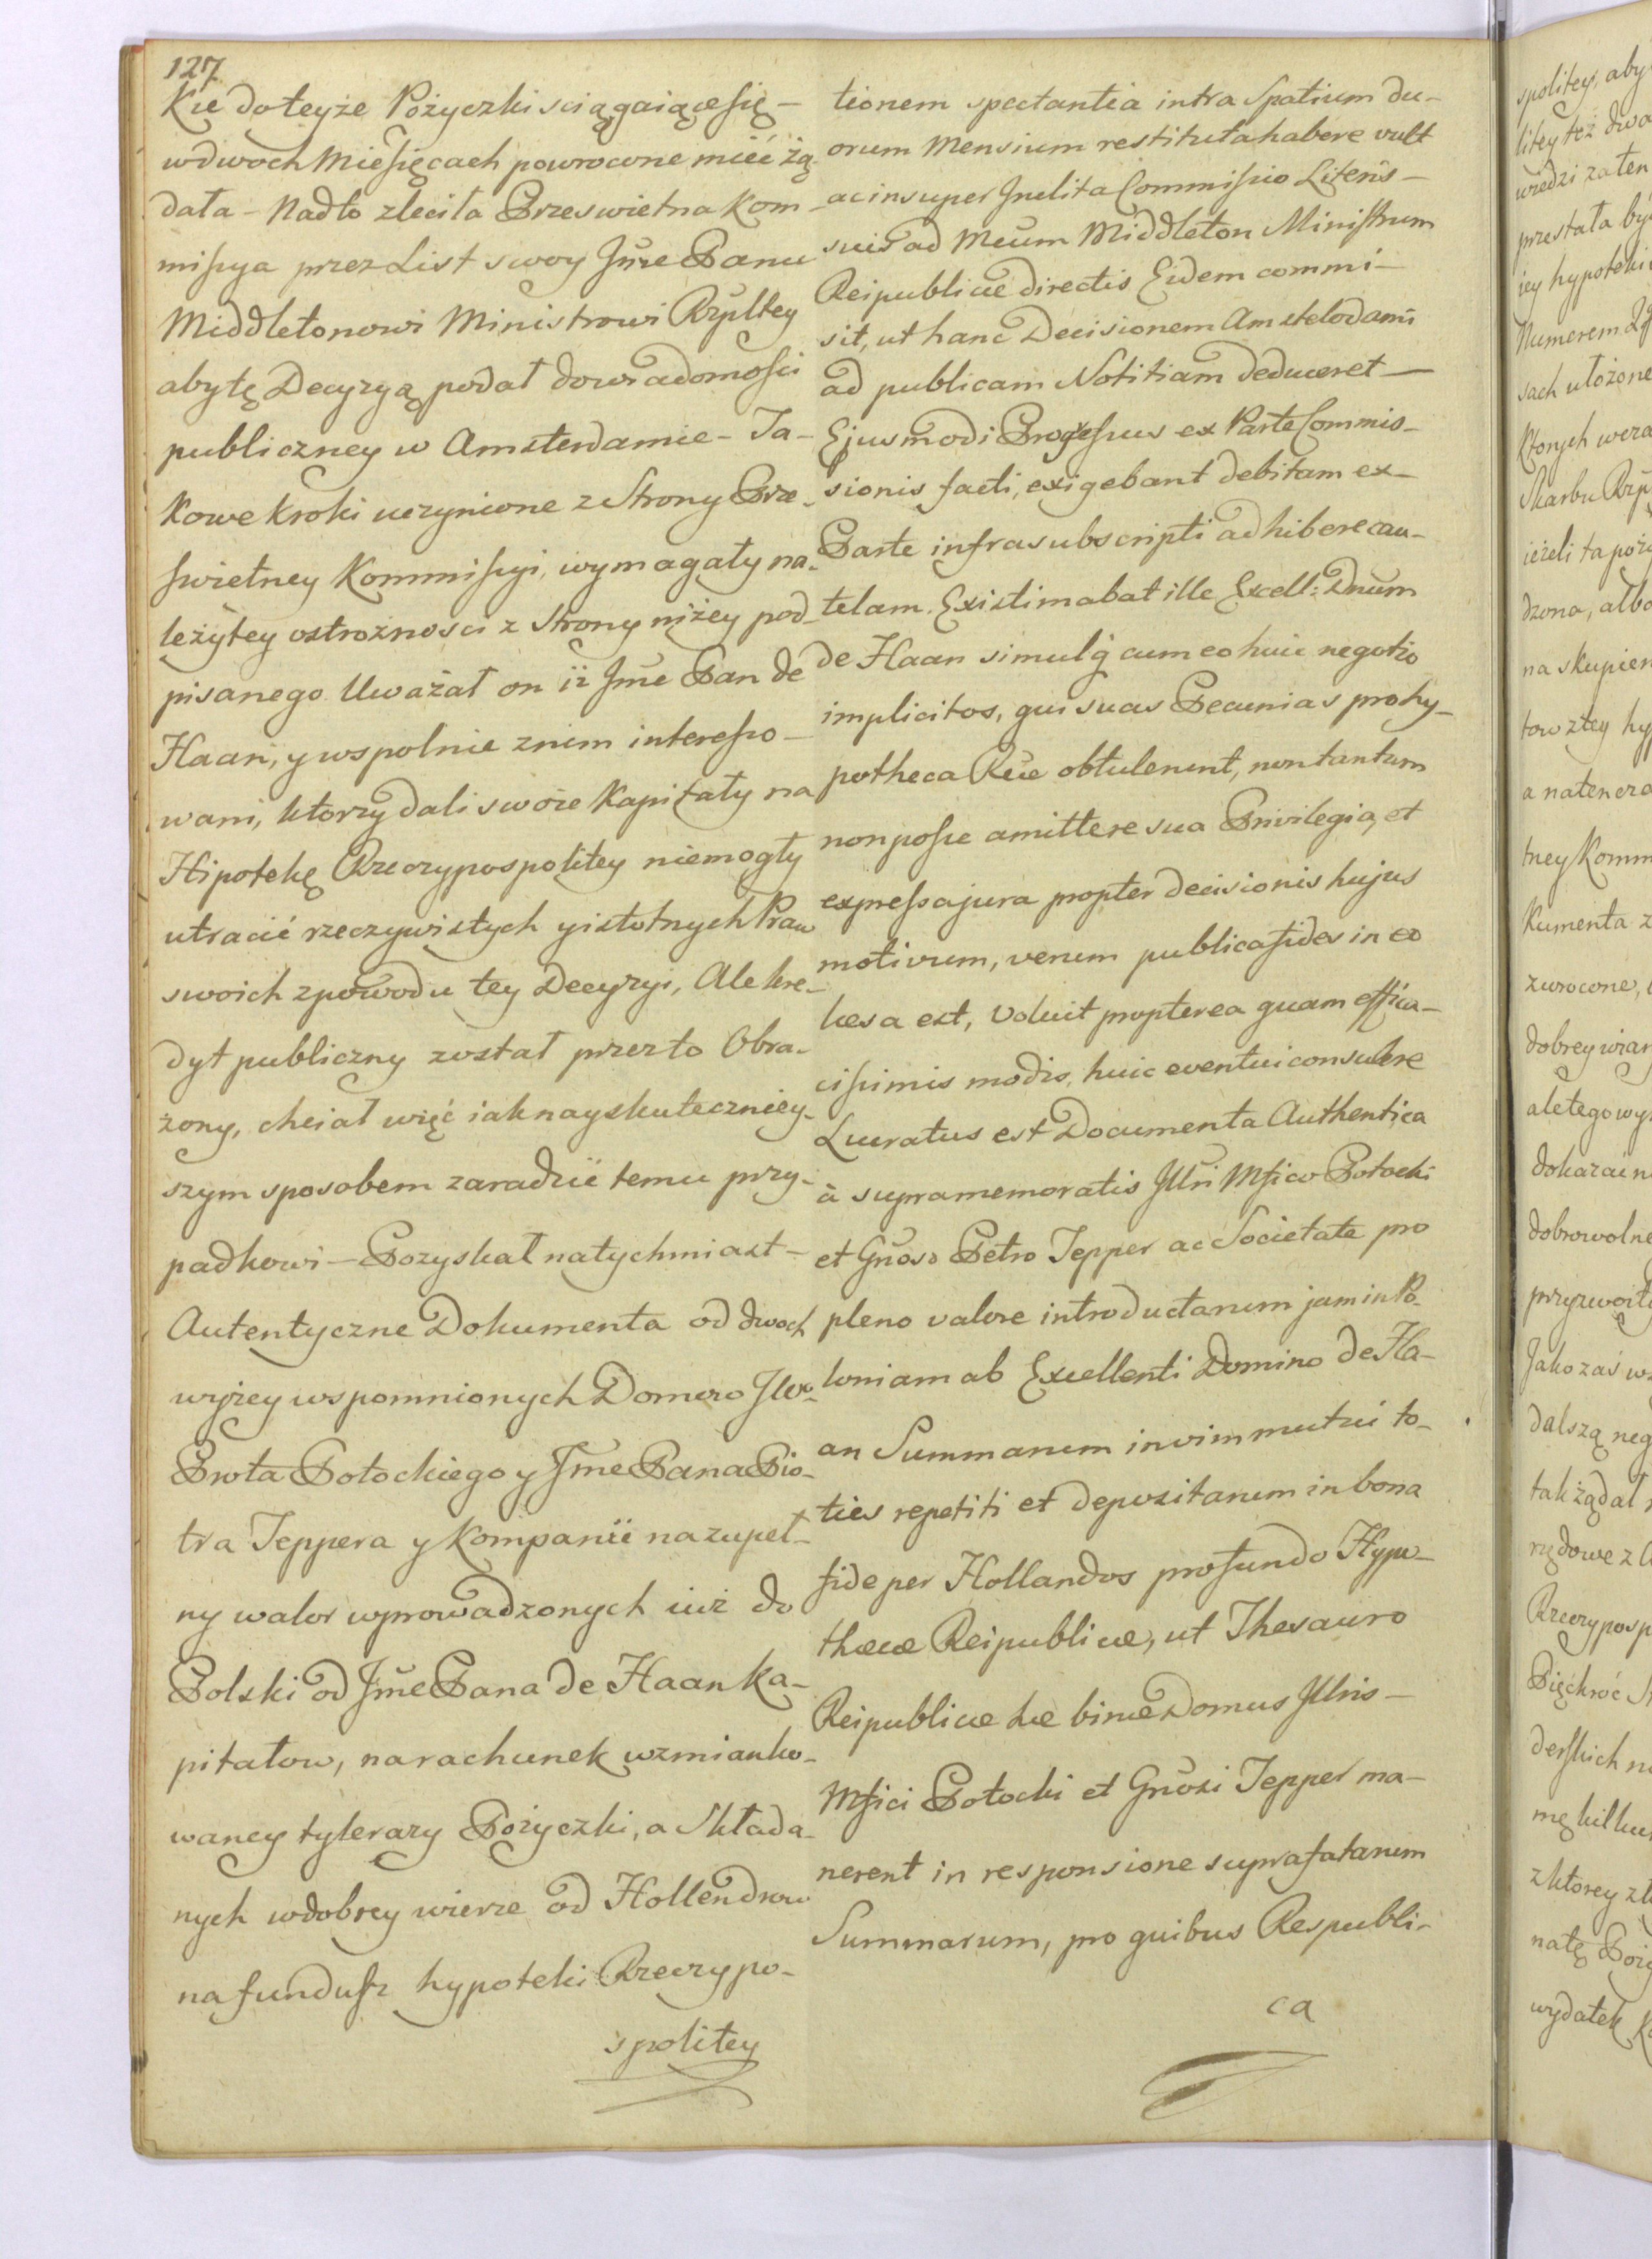 127
Kie do teyże Pożyczki sciągaiące się –
w dwoch Miesięcach powrocone mieć żą-
dała – Nadto zleciła Przeswietna Kom-
missya przez List swoy Jme Panu
Middletonowi Ministrowi Rzpltey
aby tę Decyzyą podał do wiadomosci
publiczney w Amsterdamie – Ta-
kowe kroki uczynione z Strony Prze-
swietney Kommissyi, wymagały na-
leżytey ostrożnosci z Strony niżey pod-
pisanego Uważał on iż Jme Pan de
Haan, y wspolnie z nim interesso-
wani, ktorzy dali swoie Kapitały na
Hipotekę Rzeczypospolitey niemogły
utracić rzeczywistych y istotnych Praw
swoich z powodu tey Decyzyi, Ale kre-
dyt publiczny został przez to Obra-
żony, chciał więć iak nayskuteczniey-
szym sposobem zaradzić temu przy-
padkowi – Pozyskał natychmiast –
Autentyczne Dokumenta od dwoch
wyżey wspomnionych Domow JW⁰
Prota Potockiego y Jme Pana Pio-
tra Teppera y Kompanii na zupeł-
ny walor wprowadzonych iuż do
Polski od Jme Pana de Haan Ka-
pitałow, na rachunek wzmianko-
waney tylerazy Pożyczki, a składa-
nych w dobrey wierze od Hollendrow
na fundusz hypoteki Rzeczypo-
spolitey
tionem spectantia intra Spatium du-
orum Mensium restituta habere vult
ac insuper Inclita Commissio Literis –
suis ad Meum Middleton Ministrum
Reipublicæ directis Eidem commi-
sit, ut hanc Decisionem Amstelodami
ad publicam Notitiam deduceret –
Ejusmodi Progressus ex Parte Commis-
sionis facti, exigebant debitam ex –
Parte infrasubscripti adhibere cau-
telam. Existimabat ille Excell: Dnum
de Haan simulq cum eo huic negotio
implicitos, qui suas Pecunias pro hy-
potheca Rcæ obtulerunt, non tantum
non posse amittere sua Privilegia, et
expressa jura propter decisionis hujus
motivum, verum publica fides in eo
læsa est, Voluit propterea quam effica-
cissimis modis, huic eventui consulere
Lucratus est Documenta Authentica
à supramemoratis Illri Mfico Potocki
et Gnoso Petro Tepper ac Societate pro
pleno valore introductarum jam in Po-
loniam ab Excellenti Domino de Ha-
an Summarum in vim mutui to-
ties repetiti et depositarum in bona
fide per Hollandos pro fundo Hypo-
thecæ Reipublicæ, ut Thesauro
Reipublicæ hæ binæ Domus Illris –
Mfici Potocki et Gnosi Tepper ma-
nerent in responsione suprafatarum
Summarum, pro quibus Respubli-
ca
spolitey, aby
litey też dwa
wiedzi za ten
przestała by
iey hypoteki
Numerem
sach ułożone
Ktorych wera
Skarbu Rzp
ieżeli ta poży
dzona, albo
na skupien
tow z tey hy
a natencza
tney Komm
Kumenta z
zwrocone,
dobrey wiar
ale tego wy
dokazać n
dobrowolne
przyzwoit
Jako zaś w
dalszą neg
tak żądał
rzdowe z
Rzeczyposp
Pięćkroć
derskich
mę kilku
z ktorey
natę Poży
wydatek